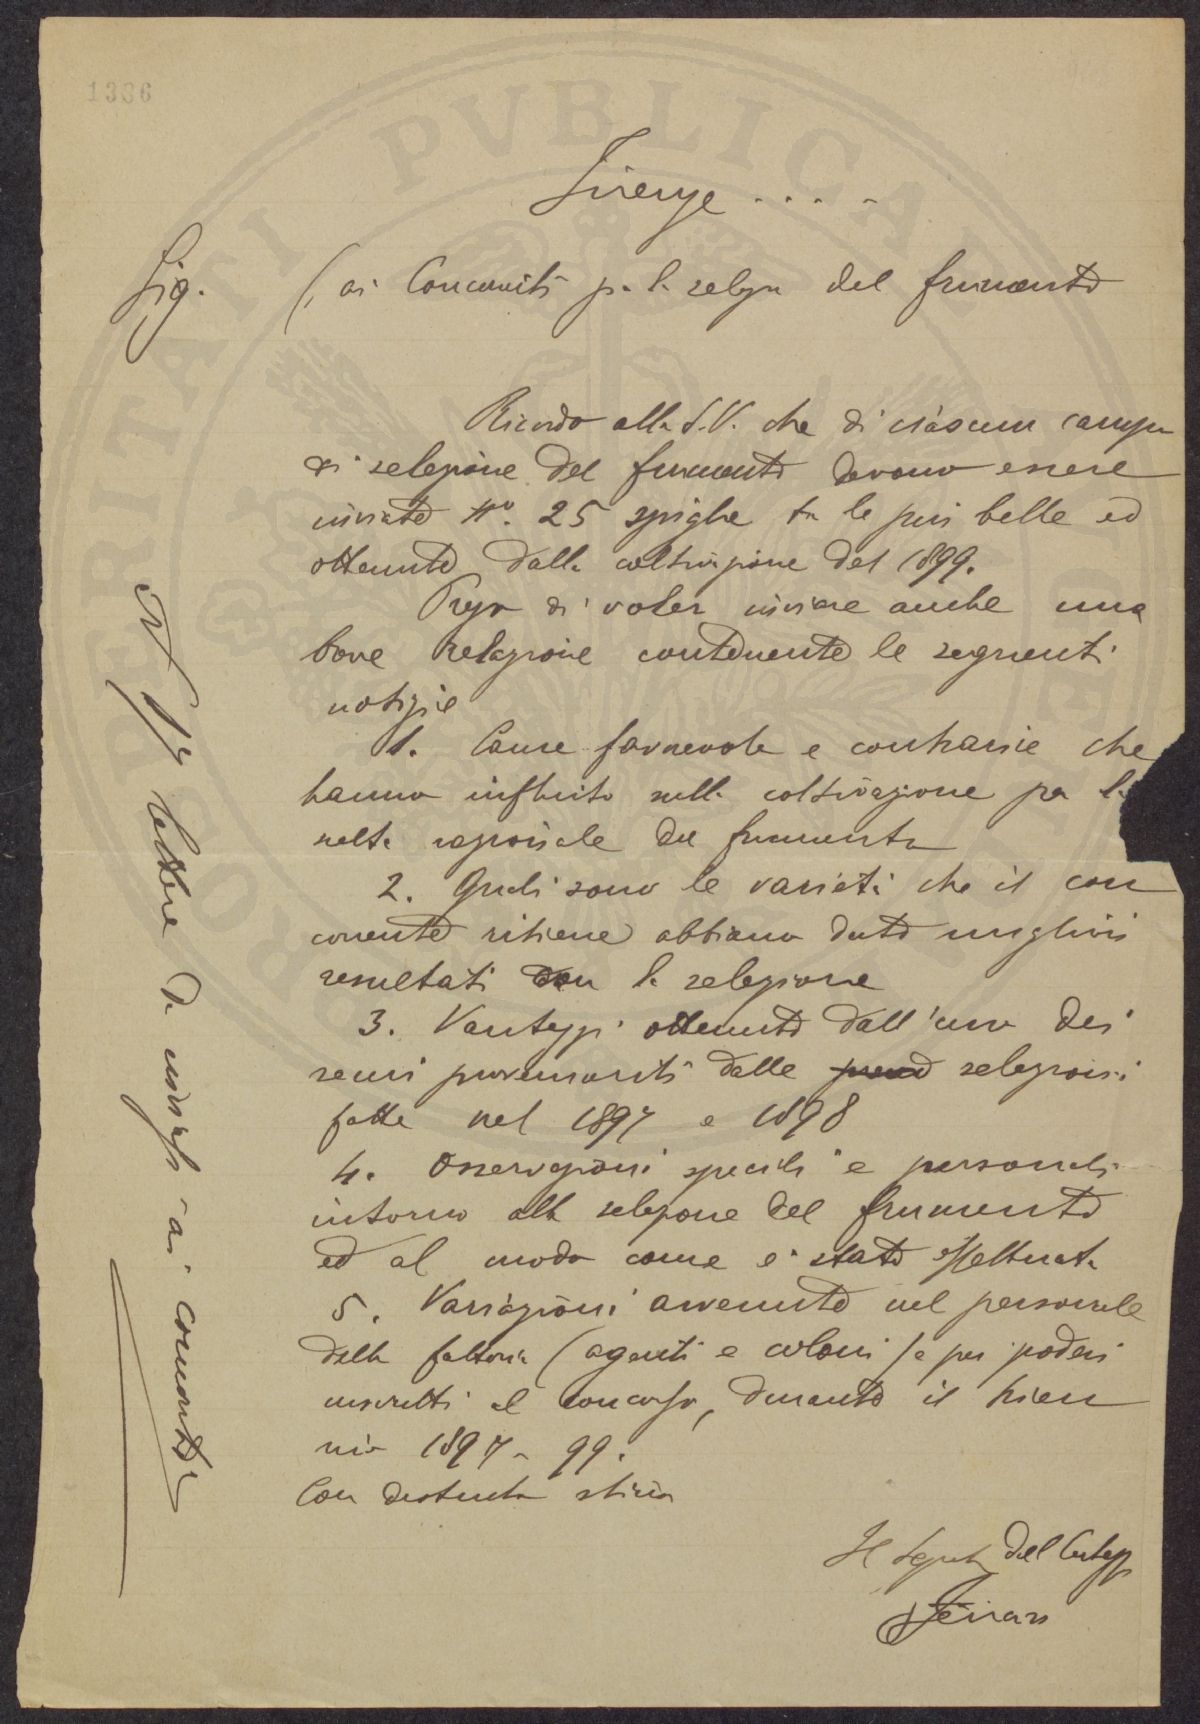 1336
Firenze . . . .
Sig.
(ai Concorrenti p. la selez. del frumento
Ricordo alla S.V. che di ciascun campo
di selezione del frumento devono essere
inviate No. 25 spighe tra le più belle ed
ottenute dalla coltivazione del 1899.
Prego di voler inviare anche una
breve relazione contenente le seguenti
notizie
1. Cause favorevole e contrarie che
hanno influito nella coltivazione per la
scelta razionale del frumento
2. Quali sono le varietà che il con
corrente ritiene abbiano dato migliori
resultati con la selezione
3. Vantaggi ottenuto dall'uso dei
semi provenienti dalle selezioni
fatte nel 1897 e 1898
4. Osservazioni speciali e personali
intorno alla selezione del frumento
ed al modo come è stato effettuata
5. Variazioni avvenute nel personale
della fattoria (agenti e coloni) e pei poderi
inscritti al concorso, durante il trien
nio 1897-99.
Con distinta stima
Il Segret. del
No 14 lettere da inviarsi ai concorrenti